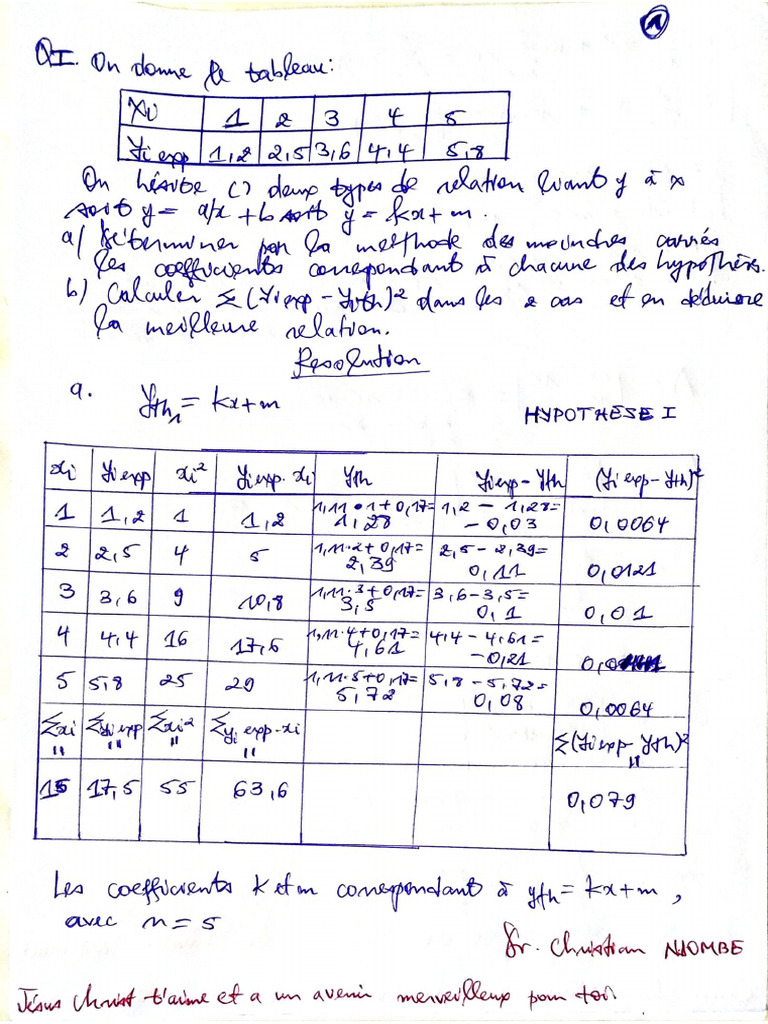 1
QI. On donne le tableau:
Xi 1 2 3 4 5
Yi exp 1,2 2,5 3,6 4,4 5,8
On hésite () deux types de relation liant y à x
soit y = a/x + b soit y = kx + m.
a) Déterminer par la méthode des moindres carrés
les coefficients correspondant à chacune des hypothèses.
b) Calculer Σ(Yi exp - Yth)² dans les 2 cas et en déduire
la meilleure relation.
Resolution
a. Yth₁ = kx + m
HYPOTHESE I
xi Yi exp xi² Yi exp. xi Yth Yi exp - Yth (Yi exp - Yth)²
1 1,2 1 1,2 1,11·1+0,17= 1,2 - 1,28= 0,0064
1,28 - 0,03
2 2,5 4 5 1,11·2+0,17= 2,5 - 2,39= 0,0121
2,39 0,11
3 3,6 9 10,8 1,11·3+0,17= 3,6 - 3,5= 0,01
3,5 0,1
4 4,4 16 17,6 1,11·4+0,17= 4,4 - 4,61=
4,61 -0,21
5 5,8 25 29 1,11·5+0,17= 5,8 - 5,72= 0,0064
5,72 0,08
Σxi ΣYi exp Σxi² ΣYi exp·xi Σ(Yi exp - Yth)²
" " " " "
15 17,5 55 63,6 0,079
Les coefficients K et m correspondant à yth = kx + m,
avec n = 5
Fr. Christian NJOMBE
Jésus Christ t'aime et a un avenir merveilleux pour toi